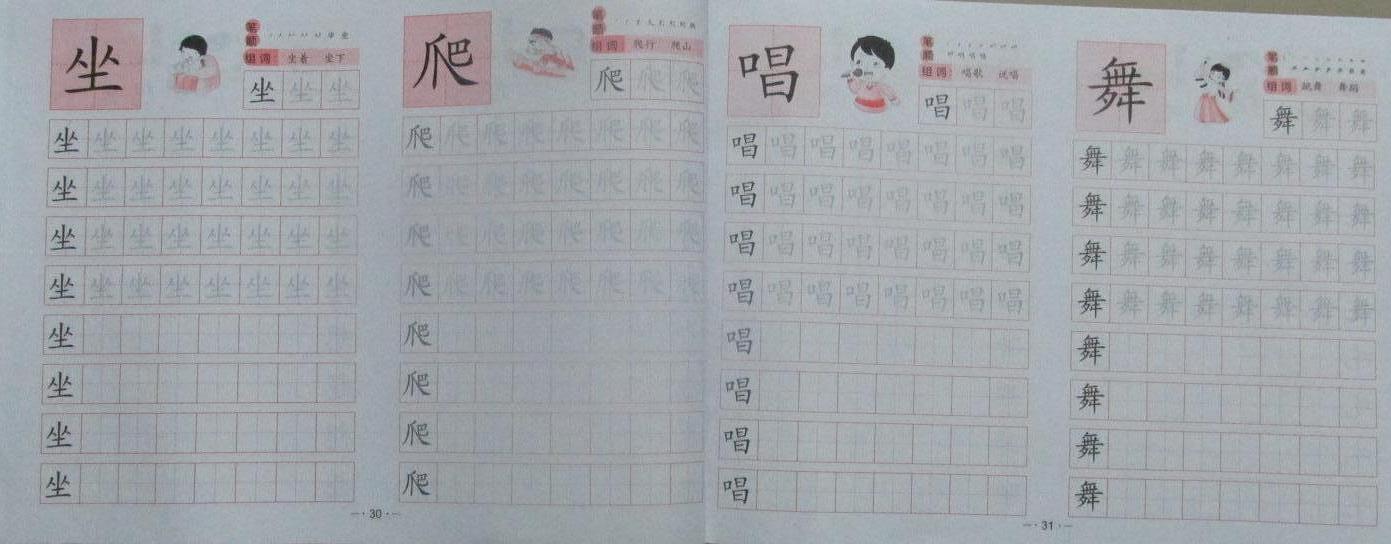 坐
笔顺
组词 坐着 坐下
坐 坐 坐
坐 坐 坐 坐 坐 坐 坐 坐
坐 坐 坐 坐 坐 坐 坐 坐
坐 坐 坐 坐 坐 坐 坐 坐
坐 坐 坐 坐 坐 坐 坐 坐
坐
坐
坐
坐
爬
笔顺
组词 爬行 爬山
爬 爬 爬
爬 爬 爬 爬 爬 爬 爬 爬
爬 爬 爬 爬 爬 爬 爬 爬
爬 爬 爬 爬 爬 爬 爬 爬
爬 爬 爬 爬 爬 爬 爬 爬
爬
爬
爬
爬
30
唱
笔顺
组词 唱歌 说唱
唱 唱 唱
唱 唱 唱 唱 唱 唱 唱 唱
唱 唱 唱 唱 唱 唱 唱 唱
唱 唱 唱 唱 唱 唱 唱 唱
唱 唱 唱 唱 唱 唱 唱 唱
唱
唱
唱
唱
舞
笔顺
组词 跳舞 舞蹈
舞 舞 舞
舞 舞 舞 舞 舞 舞 舞 舞
舞 舞 舞 舞 舞 舞 舞 舞
舞 舞 舞 舞 舞 舞 舞 舞
舞 舞 舞 舞 舞 舞 舞 舞
舞
舞
舞
舞
31